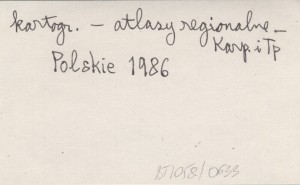 kartogr. – atlasy regionalne –
Karp. i Tp
Polskie 1986